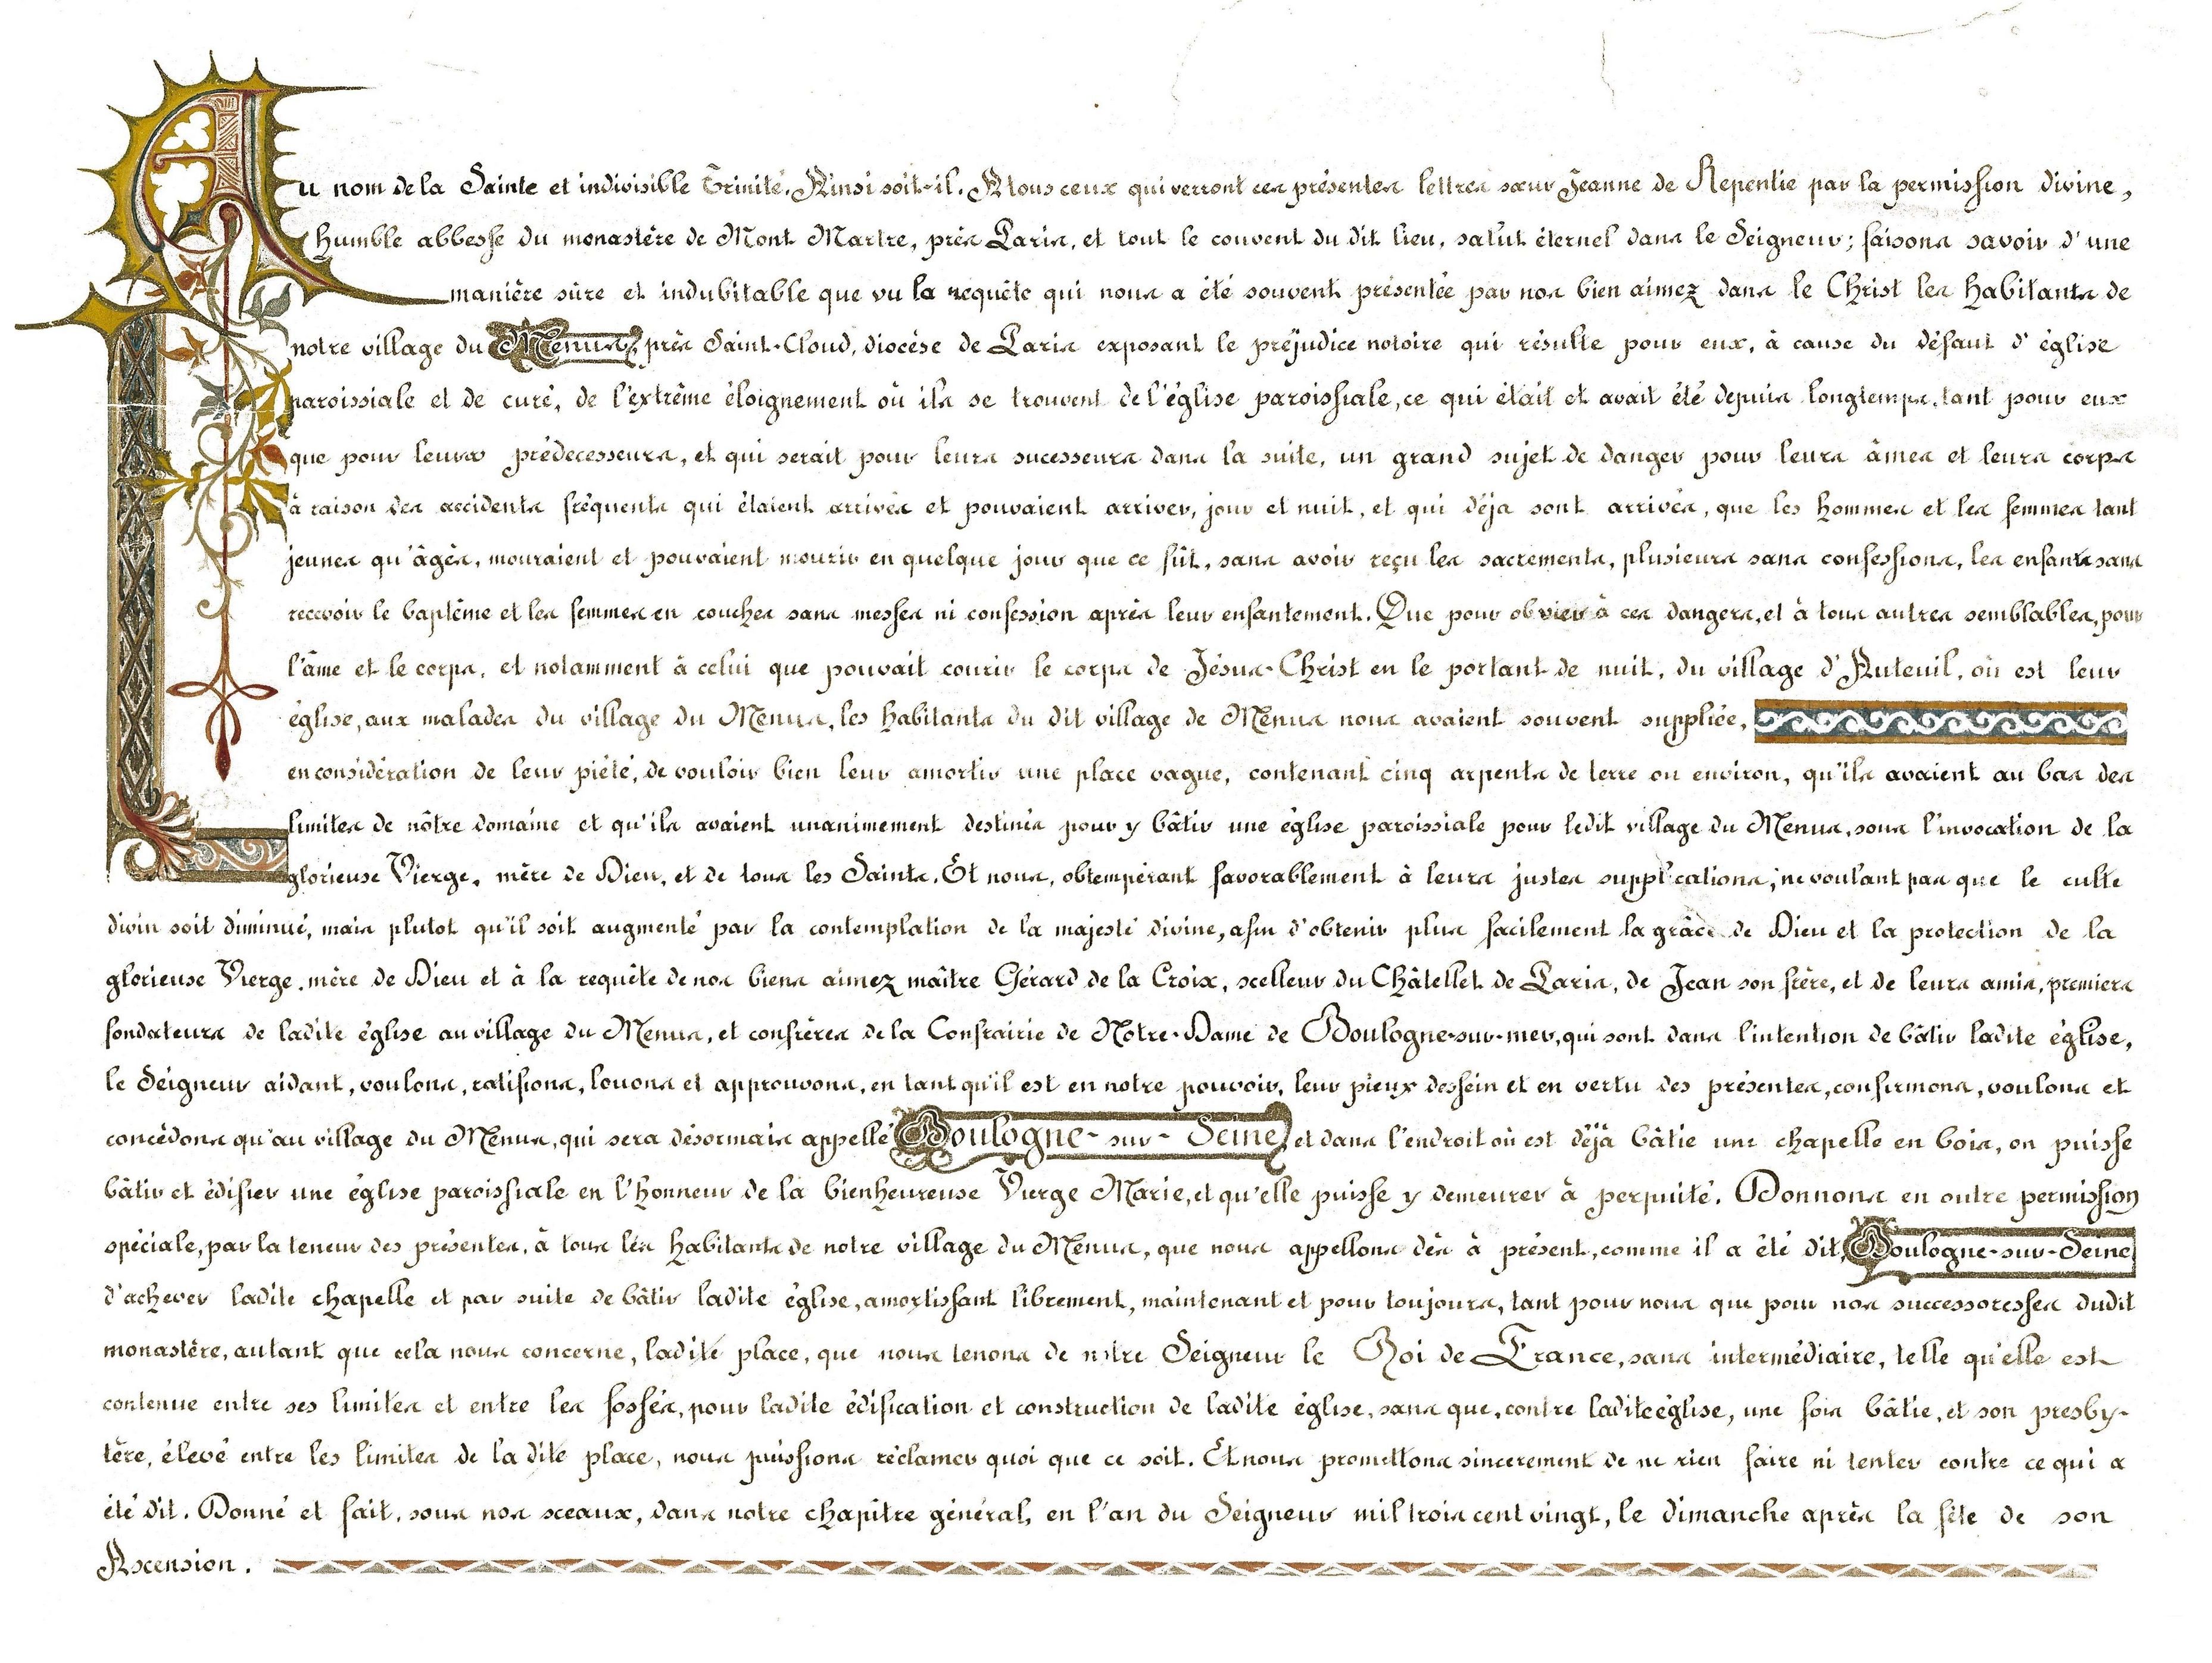 Au nom de la Sainte et indivisible Trinité. Ainsi soit-il. A tous ceux qui verront ces présentes lettres sœur Jeanne de Repentie par la permission divine,
humble abbesse du monastère de Mont Martre, près Paris, et tout le couvent du dit lieu, salut éternel dans le Seigneur; faisons savoir d'une
manière sûre et indubitable que vu la requête qui nous a été souvent présentée par nos bien aimez dans le Christ les habitants de
notre village du Menus, près Saint-Cloud, diocèse de Paris exposant le préjudice notoire qui résulte pour eux, à cause du défaut d'église
paroissiale et de curé, de l'extrême éloignement où ils se trouvent de l'église paroissiale, ce qui était et avait été depuis longtemps, tant pour eux
que pour leurs prédecesseurs, et qui serait pour leurs sucesseurs dans la suite, un grand sujet de danger pour leurs âmes et leurs corps
à raison des accidents fréquents qui étaient arrivés et pouvaient arriver, jour et nuit, et qui déja sont arrivés, que les hommes et les femmes tant
jeunes qu'âgés, mouraient et pouvaient mourir en quelque jour que ce fût, sans avoir reçu les sacrements, plusieurs sans confessions, les enfants sans
recevoir le baptême et les femmes en couches sans messes ni confession après leur enfantement. Que pour obvier à ces dangers, et à tous autres semblables, pour
l'âme et le corps, et notamment à celui que pouvait courir le corps de Jésus-Christ en le portant de nuit, du village d'Auteuil, où est leur
église, aux malades du village du Menus, les habitants du dit village de Menus nous avaient souvent suppliée,
en considération de leur piété, de vouloir bien leur amortir une place vague, contenant cinq arpents de terre ou environ, qu'ils avaient au bas des
limites de nôtre domaine et qu'ils avaient unanimement destinés pour y bâtir une église paroissiale pour ledit village du Menus, sous l'invocation de la
glorieuse Vierge, mère de Dieu, et de tous les Saints. Et nous, obtempérant favorablement à leurs justes supplications; ne voulant pas que le culte
divin soit diminué, mais plutot qu'il soit augmenté par la contemplation de la majesté divine, afin d'obtenir plus facilement la grâce de Dieu et la protection de la
glorieuse Vierge, mère de Dieu et à la requête de nos biens aimez maître Gérard de la Croix, scelleur du Châtellet de Paris, de Jean son frère, et de leurs amis, premiers
fondateurs de ladite église au village du Menus, et confrères de la Confrairie de Notre-Dame de Boulogne-sur-mer, qui sont dans l'intention de bâtir ladite église,
le Seigneur aidant, voulons, ratifions, louons et approuvons, en tant qu'il est en notre pouvoir, leur pieux dessein et en vertu des présentes, confirmons, voulons et
concédons qu'au village du Menus, qui sera désormais appellé Boulogne-sur-Seine, et dans l'endroit où est déjà bâtie une chapelle en bois, on puisse
bâtir et édifier une église paroissiale en l'honneur de la bienheureuse Vierge Marie, et qu'elle puisse y demeurer à perpuité. Donnons en outre permission
spéciale, par la teneur des présentes, à tous les habitants de notre village du Menus, que nous appellons dès à présent, comme il a été dit, Boulogne-sur-Seine
d'achever ladite chapelle et par suite de bâtir ladite église, amortissant librement, maintenant et pour toujours, tant pour nous que pour nos successoresses dudit
monastère, autant que cela nous concerne, ladite place, que nous tenons de notre Seigneur le Roi de France, sans intermédiaire, telle qu'elle est
contenue entre ses limites et entre les fossés, pour ladite édification et construction de ladite église, sans que, contre ladite église, une fois bâtie, et son presby-
tère, élevé entre les limites de la dite place, nous puissions réclamer quoi que ce soit. Et nous promettons sincerement de ne rien faire ni tenter contre ce qui a
été dit. Donné et fait, sous nos sceaux, dans notre chapitre général, en l'an du Seigneur mil trois cent vingt, le dimanche après la fête de son
Ascension.